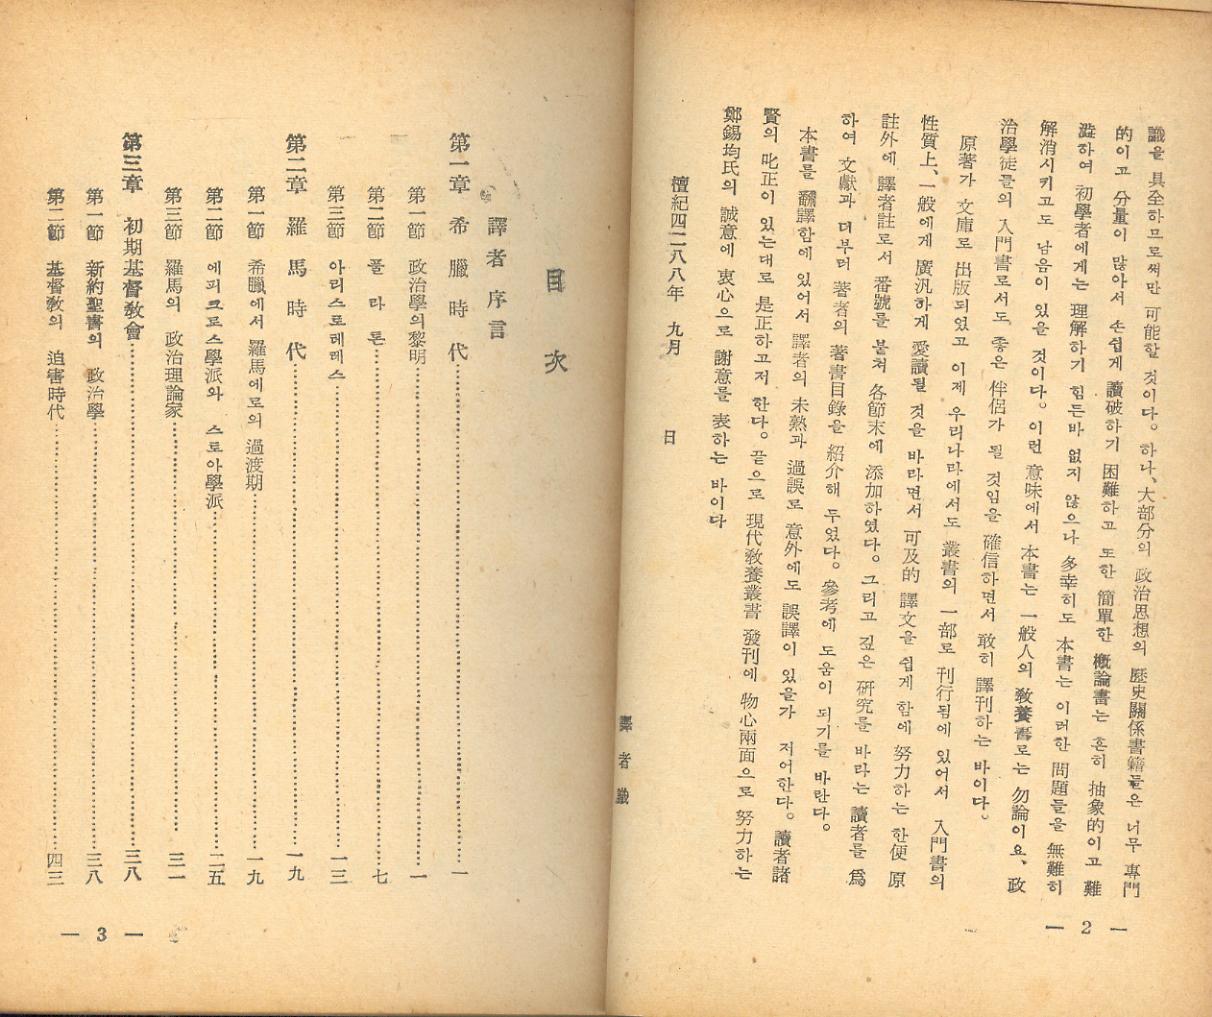 識을 具全하므로써만 可能할 것이다。 하나、大部分의 政治思想의 歷史關係書籍들은 너무 專門
的이고 分量이 많아서 손쉽게 讀破하기 困難하고 또한 簡單한 槪論書는 흔히 抽象的이고 難
澁하여 初學者에게는 理解하기 힘든바 없지 않으나 多幸히도 本書는 이러한 問題들을 無難히
解消시키고도 남음이 있을 것이다。 이런 意味에서 本書는 一般人의 敎養書로는 勿論이요、政
治學徒들의 入門書로서도、좋은 伴侶가 될 것임을 確信하면서 敢히 譯刊하는 바이다。
原著가 文庫로 出版되었고 이제 우리나라에서도 叢書의 一部로 刊行됨에 있어서 入門書의
性質上、一般에게 廣汎하게 愛讀될 것을 바라면서 可及的 譯文을 쉽게 함에 努力하는 한便 原
註外에 譯者註로서 番號를 붙쳐 各節末에 添加하였다。 그리고 깊은 硏究를 바라는 讀者를 爲
하여 文獻과 더부러 著者의 著書目錄을 紹介해 두었다。 參考에 도움이 되기를 바란다。
本書를 飜譯함에 있어서 譯者의 未熟과 過誤로 意外에도 誤譯이 있을가 저어한다。 讀者諸
賢의 叱正이 있는대로 是正하고저 한다。 끝으로 現代敎養叢書 發刊에 物心兩面으로 努力하는
鄭錫均氏의 誠意에 衷心으로 謝意를 表하는 바이다
檀紀四二八八年 九月 日
譯者識
— 2 —
目次
譯者序言
第一章 希臘時代……一
第一節 政治學의黎明……一
第二節 플라톤……七
第三節 아리스토레레스……一三
第二章 羅馬時代……一九
第一節 希臘에서 羅馬에로의 過渡期……一九
第二節 에피크로스學派와 스토아學派……二五
第三節 羅馬의 政治理論家……三一
第三章 初期基督敎會……三八
第一節 新約聖書의 政治學……三八
第二節 基督敎의 迫害時代……四三
— 3 —